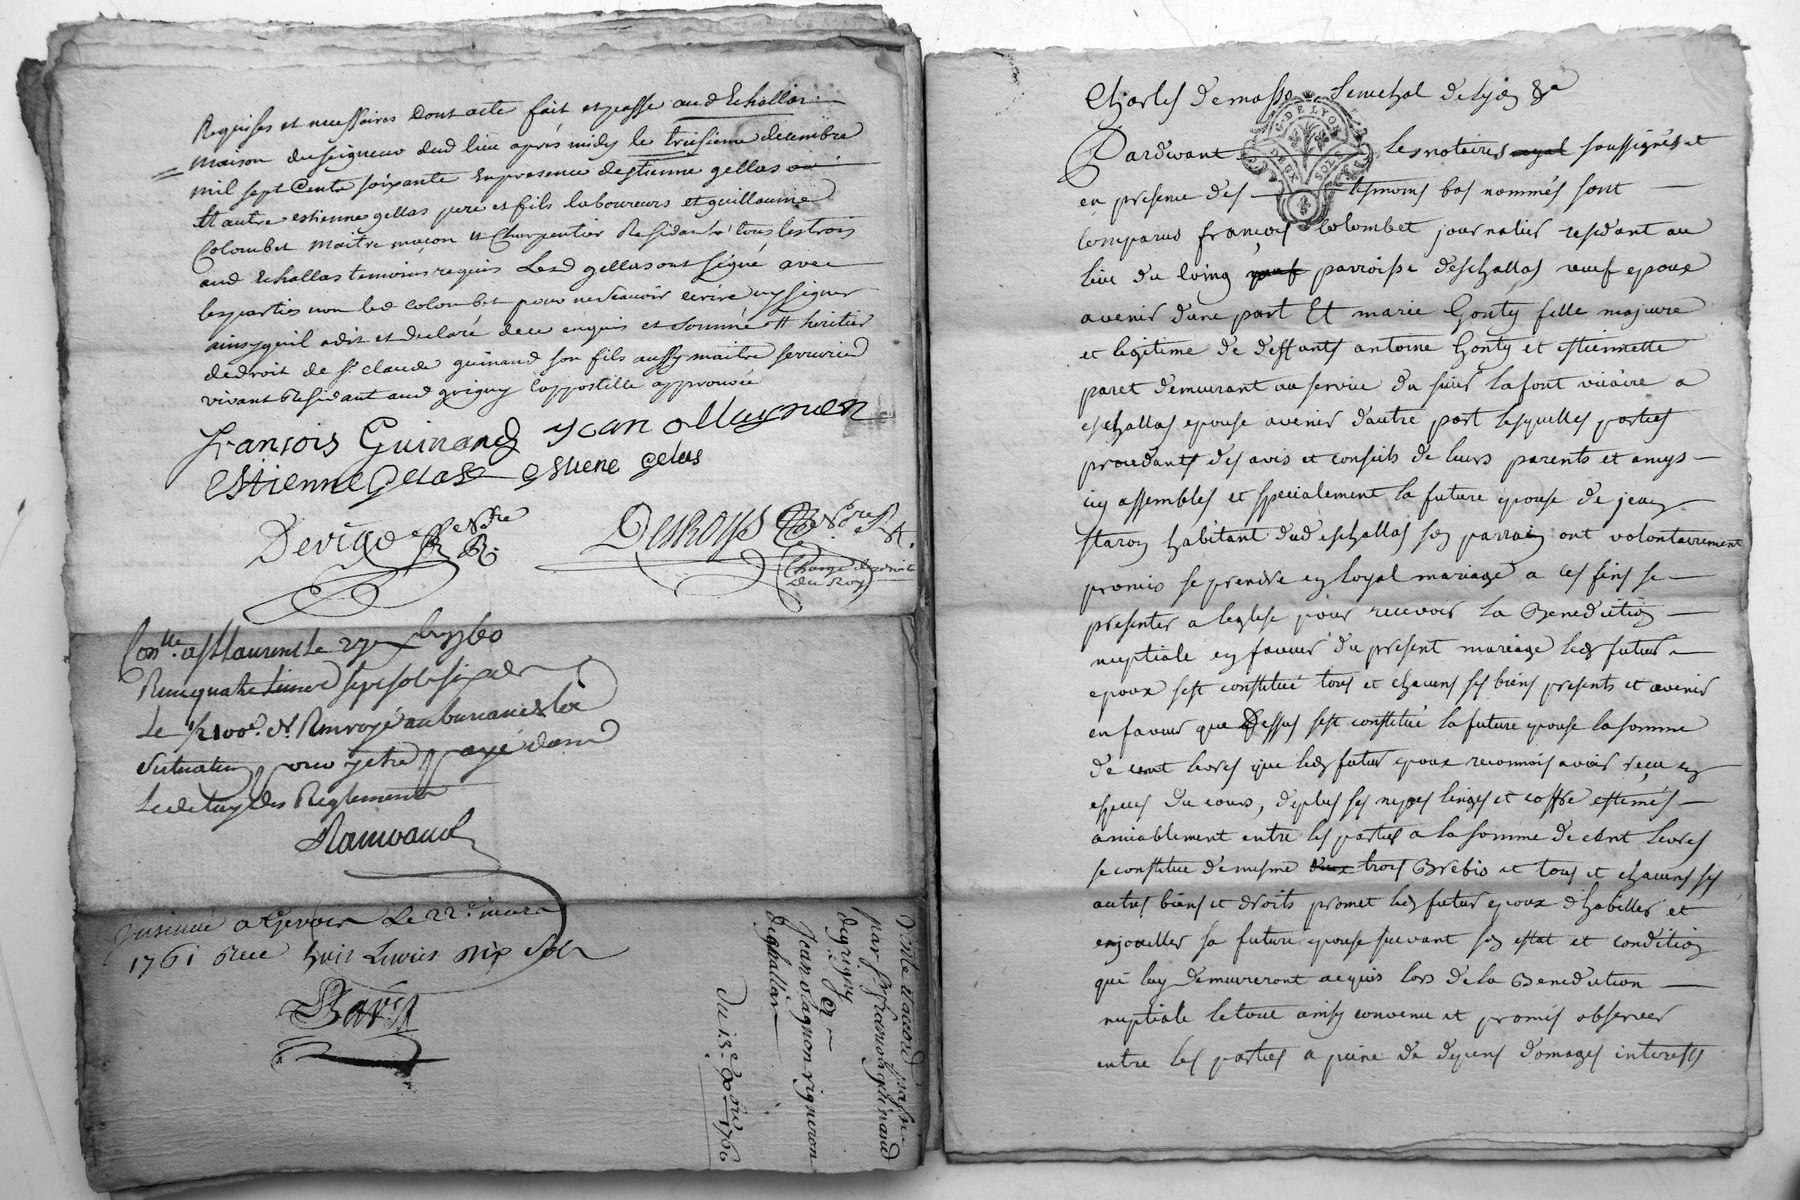 Requises et necessaires dont acte fait et passé aud Echallas
maison du seigneur dud lieu après midy le treisieme decembre
mil sept cents soixante en presence d'estienne gellas
et autre estienne gellas pere et fils laboureurs et guillaume
Colombet maitre maçon et Charpentier Residants tous les trois
aud Echallas temoins requis Lesd gellas ont signé avec
les parties non led colombet pour ne scavoir ecrire ny signer
ainsy qu'il a dit et declaré de ce enquis et sommé # heritier
de droit de sr claude guinand son fils aussy maitre serrurier
vivant Residant aud grigny l'appostille approuvée
françois Guinand jean ollagnon
estienne Gelas estiene gelas
Devigo
Desroys
Chargé des droits
Du Roy
Conlle a st laurent le 27e
Reçu quatre livres sept sols six den
Le 100e d. Renvoyé au bureau de la
situation pour y etre payé dans
Le delay des Reglements
insinué a Le 22e mars
1761 Reçu huit Livres dix sols
Vente et accord passé
par sr francois guinand
de grigny
Jean olagnon vigneron
d'echallas
Du 13e xbre 1760
Charles de masso Senechal de lyon &a
Pardevant Les notaires royal soussignés et
en presence des tesmoins bas nommés sont
comparus françois Colombet journalier residant au
lieu du loing veuf parroisse d'eschallas veuf epoux
avenir d'une part Et marie Gonty fille majeure
et legitime de deffunts antoine Gonty et estiennette
paret demeurant au service du sieur lafont vicaire a
eschallas epouse avenir d'autre part lesquelles parties
procedants des avis et conseils de leurs parents et amys
icy assemblés et specialement la future epouse de jean
staron habitant dud eschallas son parrain ont volontairement
promis se prendre en loyal mariage a ces fins se
presenter a leglise pour recevoir la Benediction
nuptiale en faveur du present mariage led futur
epoux sest constitué tous et chacuns ses biens presents et avenir
en faveur que Dessus sest constitué la future epouse la somme
de cent livres que led futur epoux reconnois avoir reçu en
especes du cours, deplus ses nipes linges et coffre estimés
amiablement entre les parties a la somme de cent livres
se constitue de mesme deux trois Brebis et tous et chacuns ses
autres biens et droits promet led futur epoux d'habiller et
enjoualler sa future epouse suivant son estat et condition
qui luy demeureront acquis lors de la Benediction
nuptiale le tout ainsy convenu et promis observer
entre les parties a peine de depens domages interests